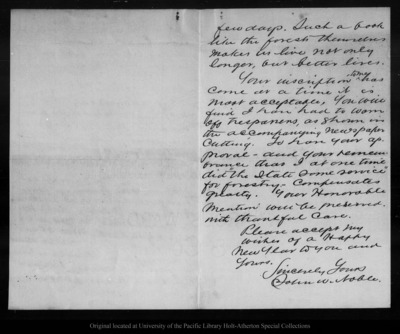 few days. Such a book
like the forests themselves
makes us live not only
longer, but better lives.
Your inscription to me has
come at a time it is
most acceptable, You will
find I have had to warn
off trespassers, as shown in
the accompanying newspaper
cutting. To have your ap-
proval - and your remem-
brance that I at one time
did the State some service
for forestry - compensates
greatly. Your Honorable
mention will be preserved
with thankful care.
Please accept my
wishes of a Happy
New Year to you and
Yours.
Sincerely Yours
John W. Noble.
Original located at University of the Pacific Library Holt-Atherton Special Collections